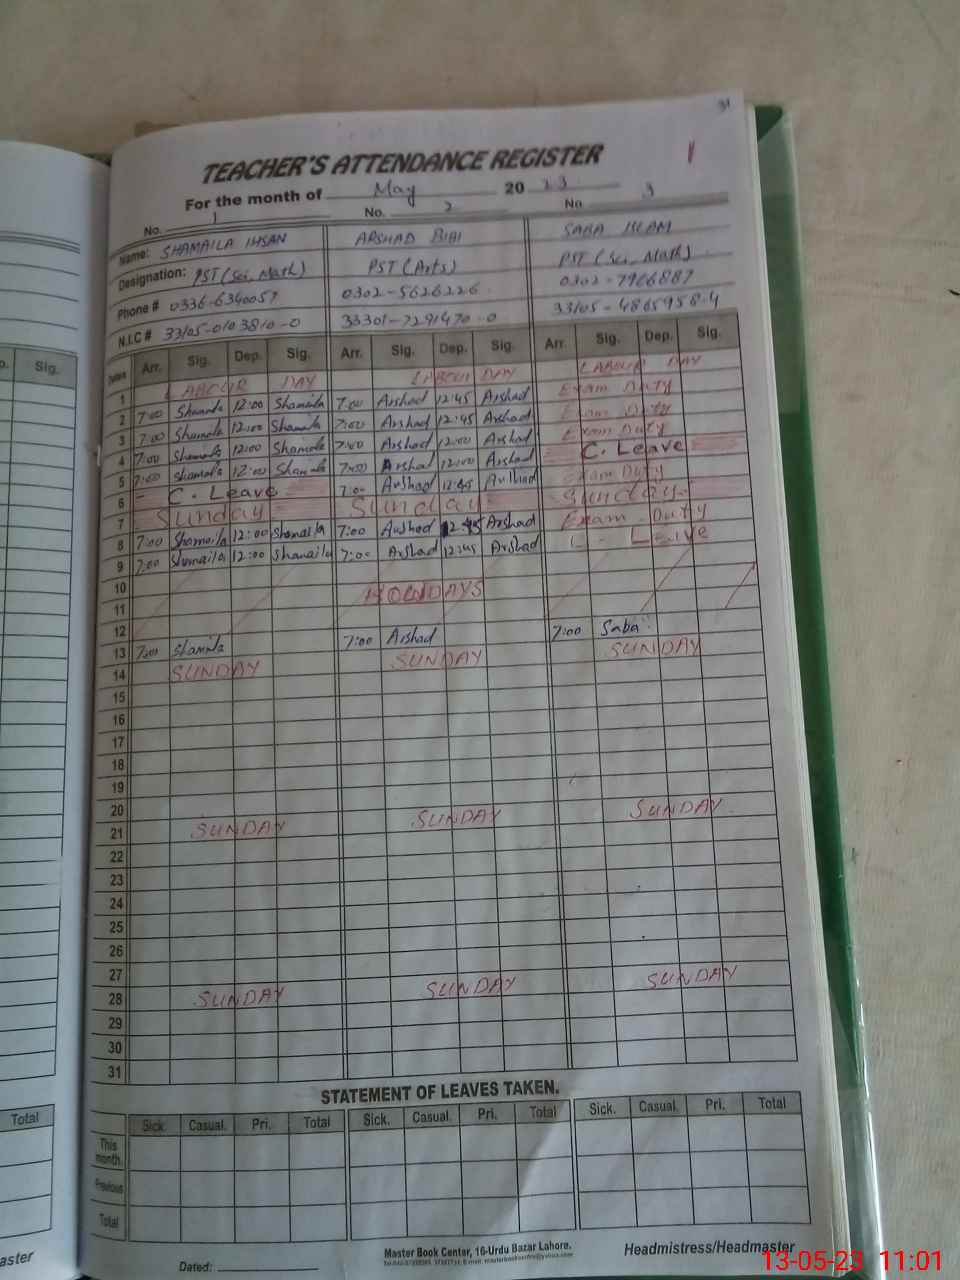 31
TEACHER'S ATTENDANCE REGISTER
For the month of May 20 23
No. 1 No. 2 No. 3
Name: SHAMAILA IHSAN ARSHAD BIBI SABA ISLAM
Designation: PST (Sci, Math) PST (Arts) PST (Sci, Math)
Phone # 0336-6340057 0302-5626226 0302-7966887
N.I.C # 33105-0103810-0 33301-7291470-0 33105-4865958-4
Dates Arr. Sig. Dep. Sig. Arr. Sig. Dep. Sig. Arr. Sig. Dep. Sig.
1 LABOUR DAY LABOUR DAY LABOUR DAY
2 7:00 Shamaila 12:00 Shamaila 7:00 Arshad 12:45 Arshad Exam Duty
3 7:00 Shamaila 12:00 Shamaila 7:00 Arshad 12:45 Arshad Exam Duty
4 7:00 Shamaila 12:00 Shamaila 7:00 Arshad 12:00 Arshad Exam Duty
5 7:00 Shamaila 12:00 Shamaila 7:00 Arshad 12:00 Arshad C. Leave
6 C. Leave 7:00 Arshad 12:45 Arshad Exam Duty
7 Sunday Sunday Sunday
8 7:00 Shamaila 12:00 Shamaila 7:00 Arshad 12:45 Arshad Exam Duty
9 7:00 Shamaila 12:00 Shamaila 7:00 Arshad 12:45 Arshad C. Leave
10
11 HOLIDAYS
12
13 7:00 Shamaila 7:00 Arshad 7:00 Saba
14 SUNDAY SUNDAY SUNDAY
15
16
17
18
19
20
21 SUNDAY SUNDAY SUNDAY
22
23
24
25
26
27
28 SUNDAY SUNDAY SUNDAY
29
30
31
STATEMENT OF LEAVES TAKEN.
Total Sick. Casual. Pri. Total Sick. Casual. Pri. Total Sick. Casual. Pri. Total
This month.
Previous
Total
Dated: Master Book Center, 16-Urdu Bazar Lahore. Headmistress/Headmaster
13-05-23 11:01